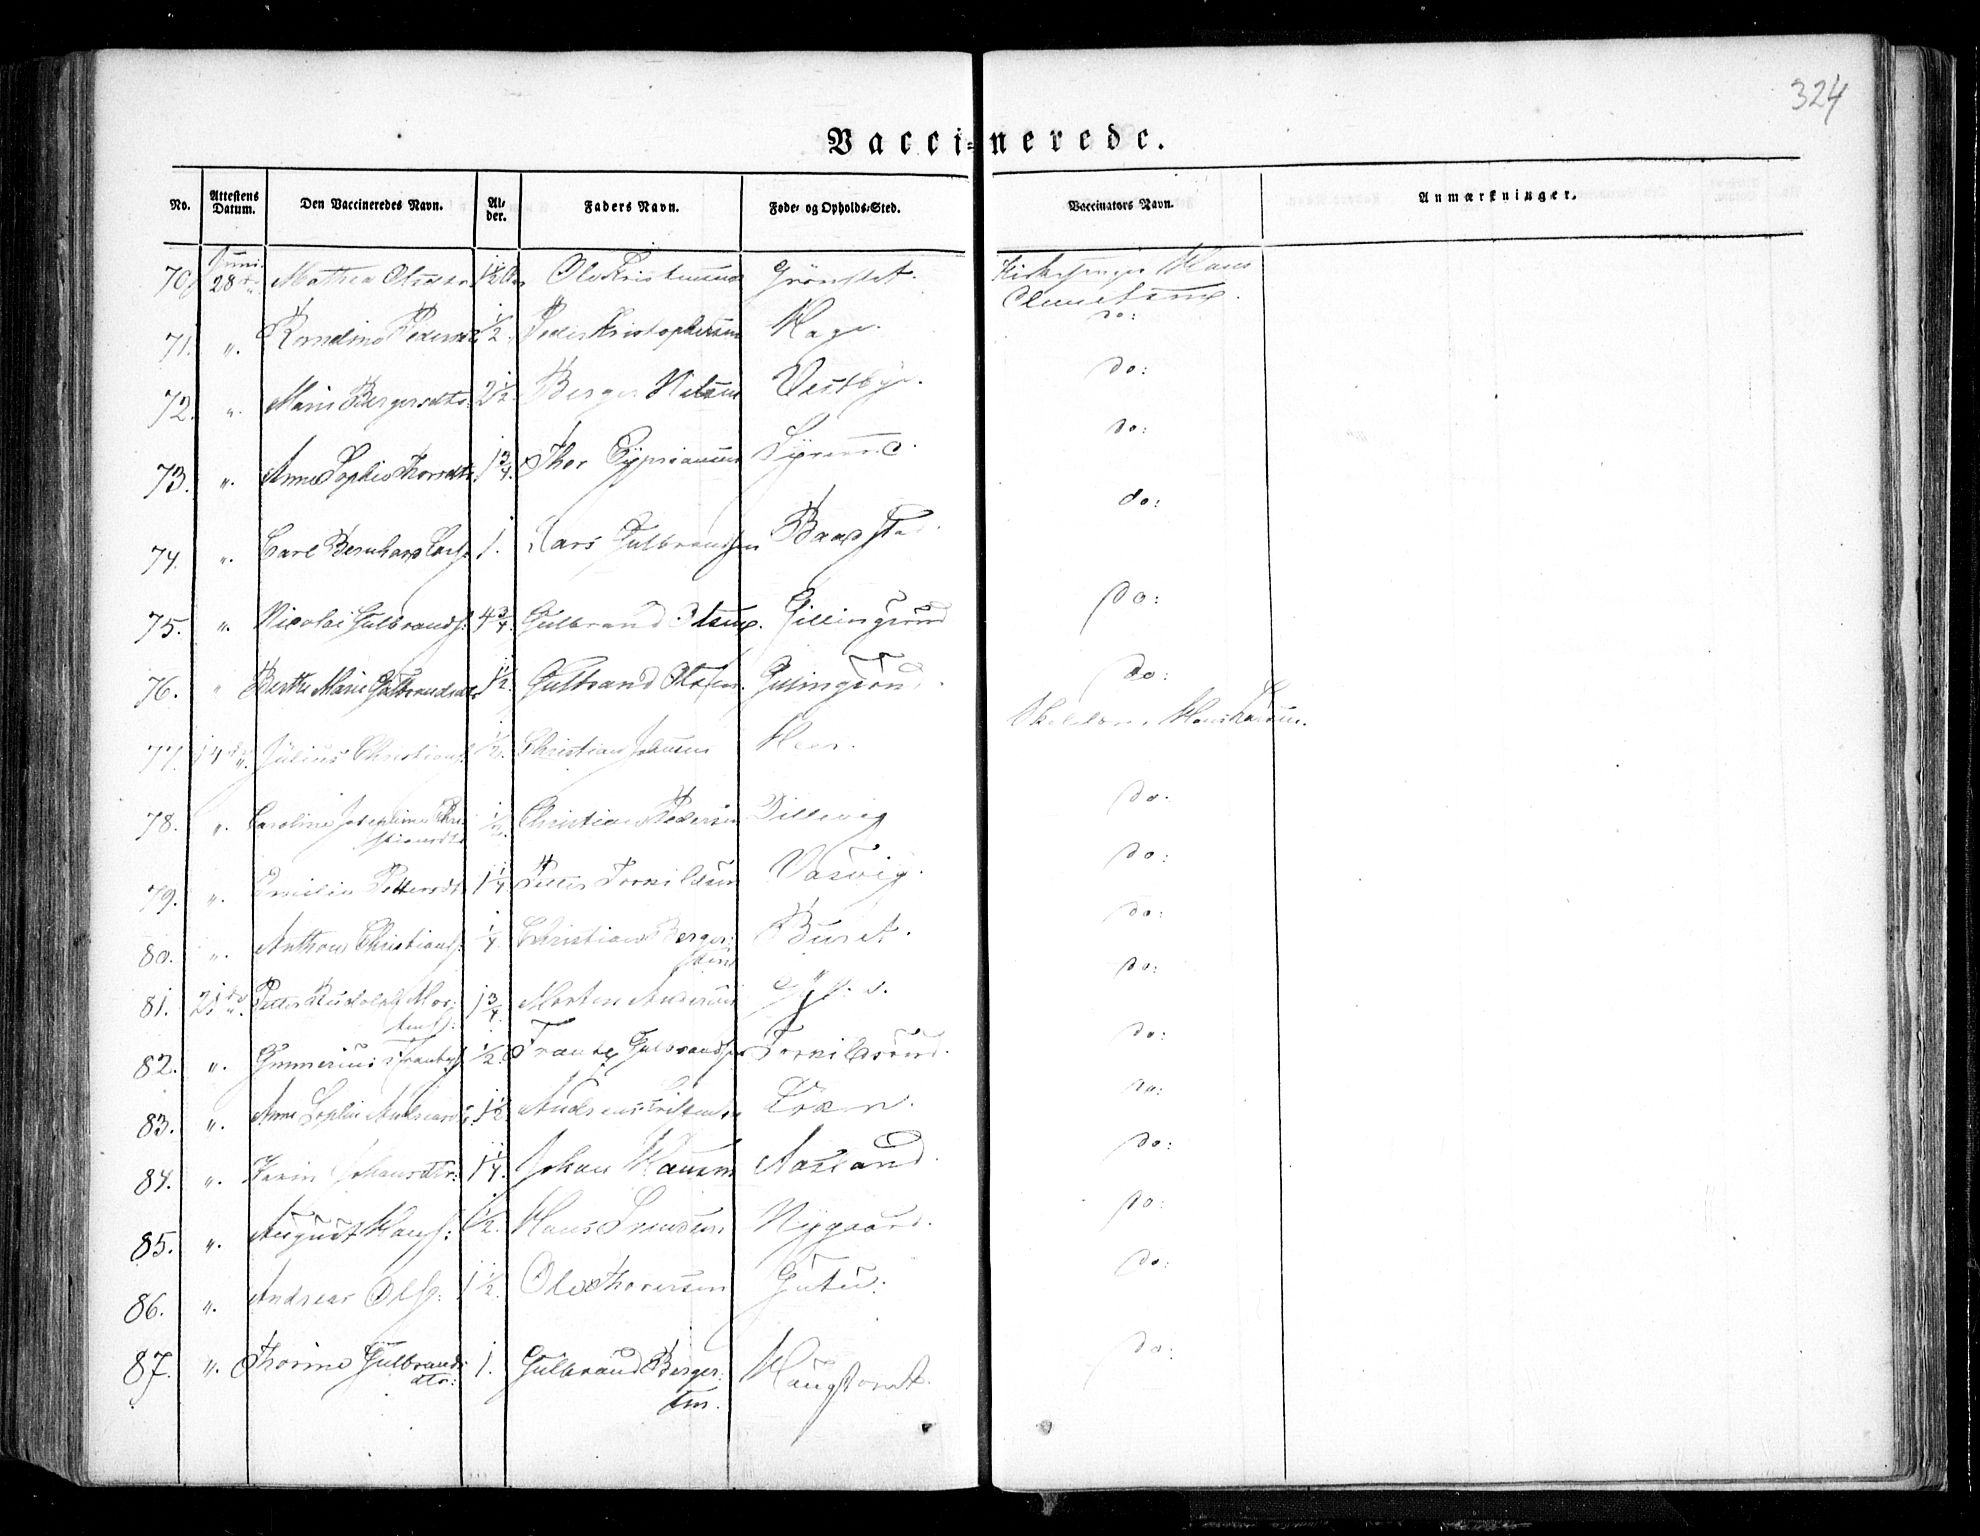 324
Vacci=nerede.
No. Attestens Datum. Den Vaccineredes Navn. Al-der. Faders Navn. Føde- og Opholds-Sted. Vaccinators Navn. Anmærkninger.
70. Juni 28de Mathea Olsdtr 1½ Ole Kristiansen Grønstet. Kirkesanger Hans
71. „. Pedersdtr ½ Peder Kristophersen Hage. do:
72. „. Marie Bergersdtr. 2½ Berger Nilsen Vestbye. do:
73. „. Anne Sophie Thorsdtr. 1¾. Thor Cypriansen do:
74. „. Carl Bernhard Larss. 1. Lars Gulbrandsen Baastad. do:
75. „. Nicolai Gulbrands. 4¾. Gulbrand Olsen. Gillingsrud do:
76. „ Berthe Marie Gulbrandsdtr 1½. Gulbrand Olsen. Gillingsrud. do:
77. 14de „. Julius Christians. ½. Christian Johnsen Heer. Hans Larsen.
78. „. Caroline Josephine Chri-
stiansdtr ½. Christian Pedersen Tillevig do.
79. „. Emilie Pettersdtr 1¼ Petter Torkildsen Vasvig. do:
80. „. Anthon Christians. ¼ Christian Berger-
sen Buret. do:
81. 21de „. Petter Rudolph Mor-
tens. 1¾. Morten Andersen do:
82. „. Frantz ½. Frantz Gulbrandsen Torkilsrud. do:
83. „. Anne Sophie Andreasdtr. 1½ Andreas do:
84. „. Karin Johansdtr. 1¼. Johan Hansen Aasland. do:
85. „. August Hans. ½. Hans Nygaard. do:
86. „. Andreas Ols. 1½. Ole Thoresen Gutu. do:
87. „. Thorine Gulbrands-
dtr: 1. Gulbrand Berger-
sen. Haugstvedt. do: